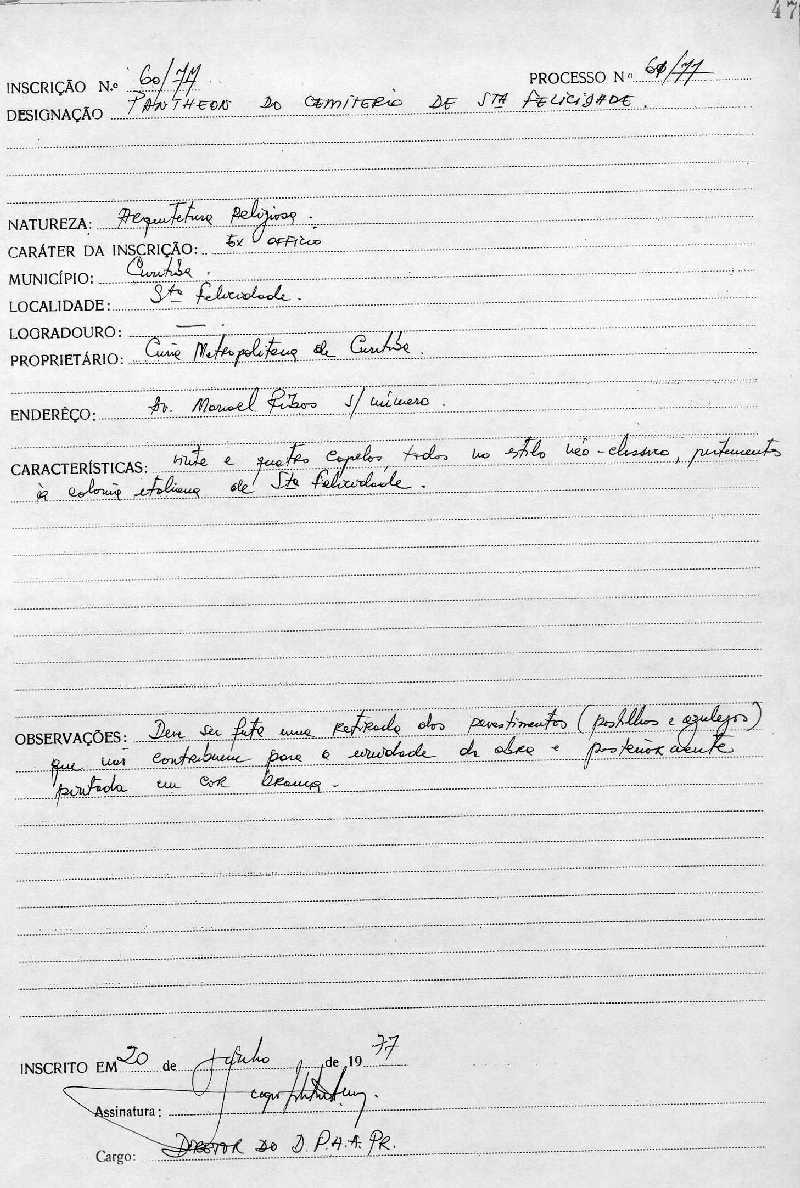 47
INSCRIÇÃO N.º 60/77 PROCESSO Nº 61/77
DESIGNAÇÃO PANTHEON DO CEMITERIO DE STA FELICIDADE.
NATUREZA: Arquitetura Religiosa.
CARÁTER DA INSCRIÇÃO: Ex OFFICIO
MUNICÍPIO: Curitiba.
LOCALIDADE: Sta Felicidade.
LOGRADOURO: —.
PROPRIETÁRIO: Curia Metropolitana de Curitiba.
ENDERÊÇO: Av. Manoel Ribas s/ número.
CARACTERÍSTICAS: vinte e quatro capelas, todas no estilo néo-classico, pertencentes
à colonia italiana de Sta Felicidade.
OBSERVAÇÕES: Deve ser feita uma retirada dos revestimentos (pastilhas e azulejos)
que não contribuem para a unidade da obra e posteriormente
pintada em cor branca.
INSCRITO EM 20 de de 1977
Assinatura:
Cargo: DIRETOR DO D.P.A.A. PR.